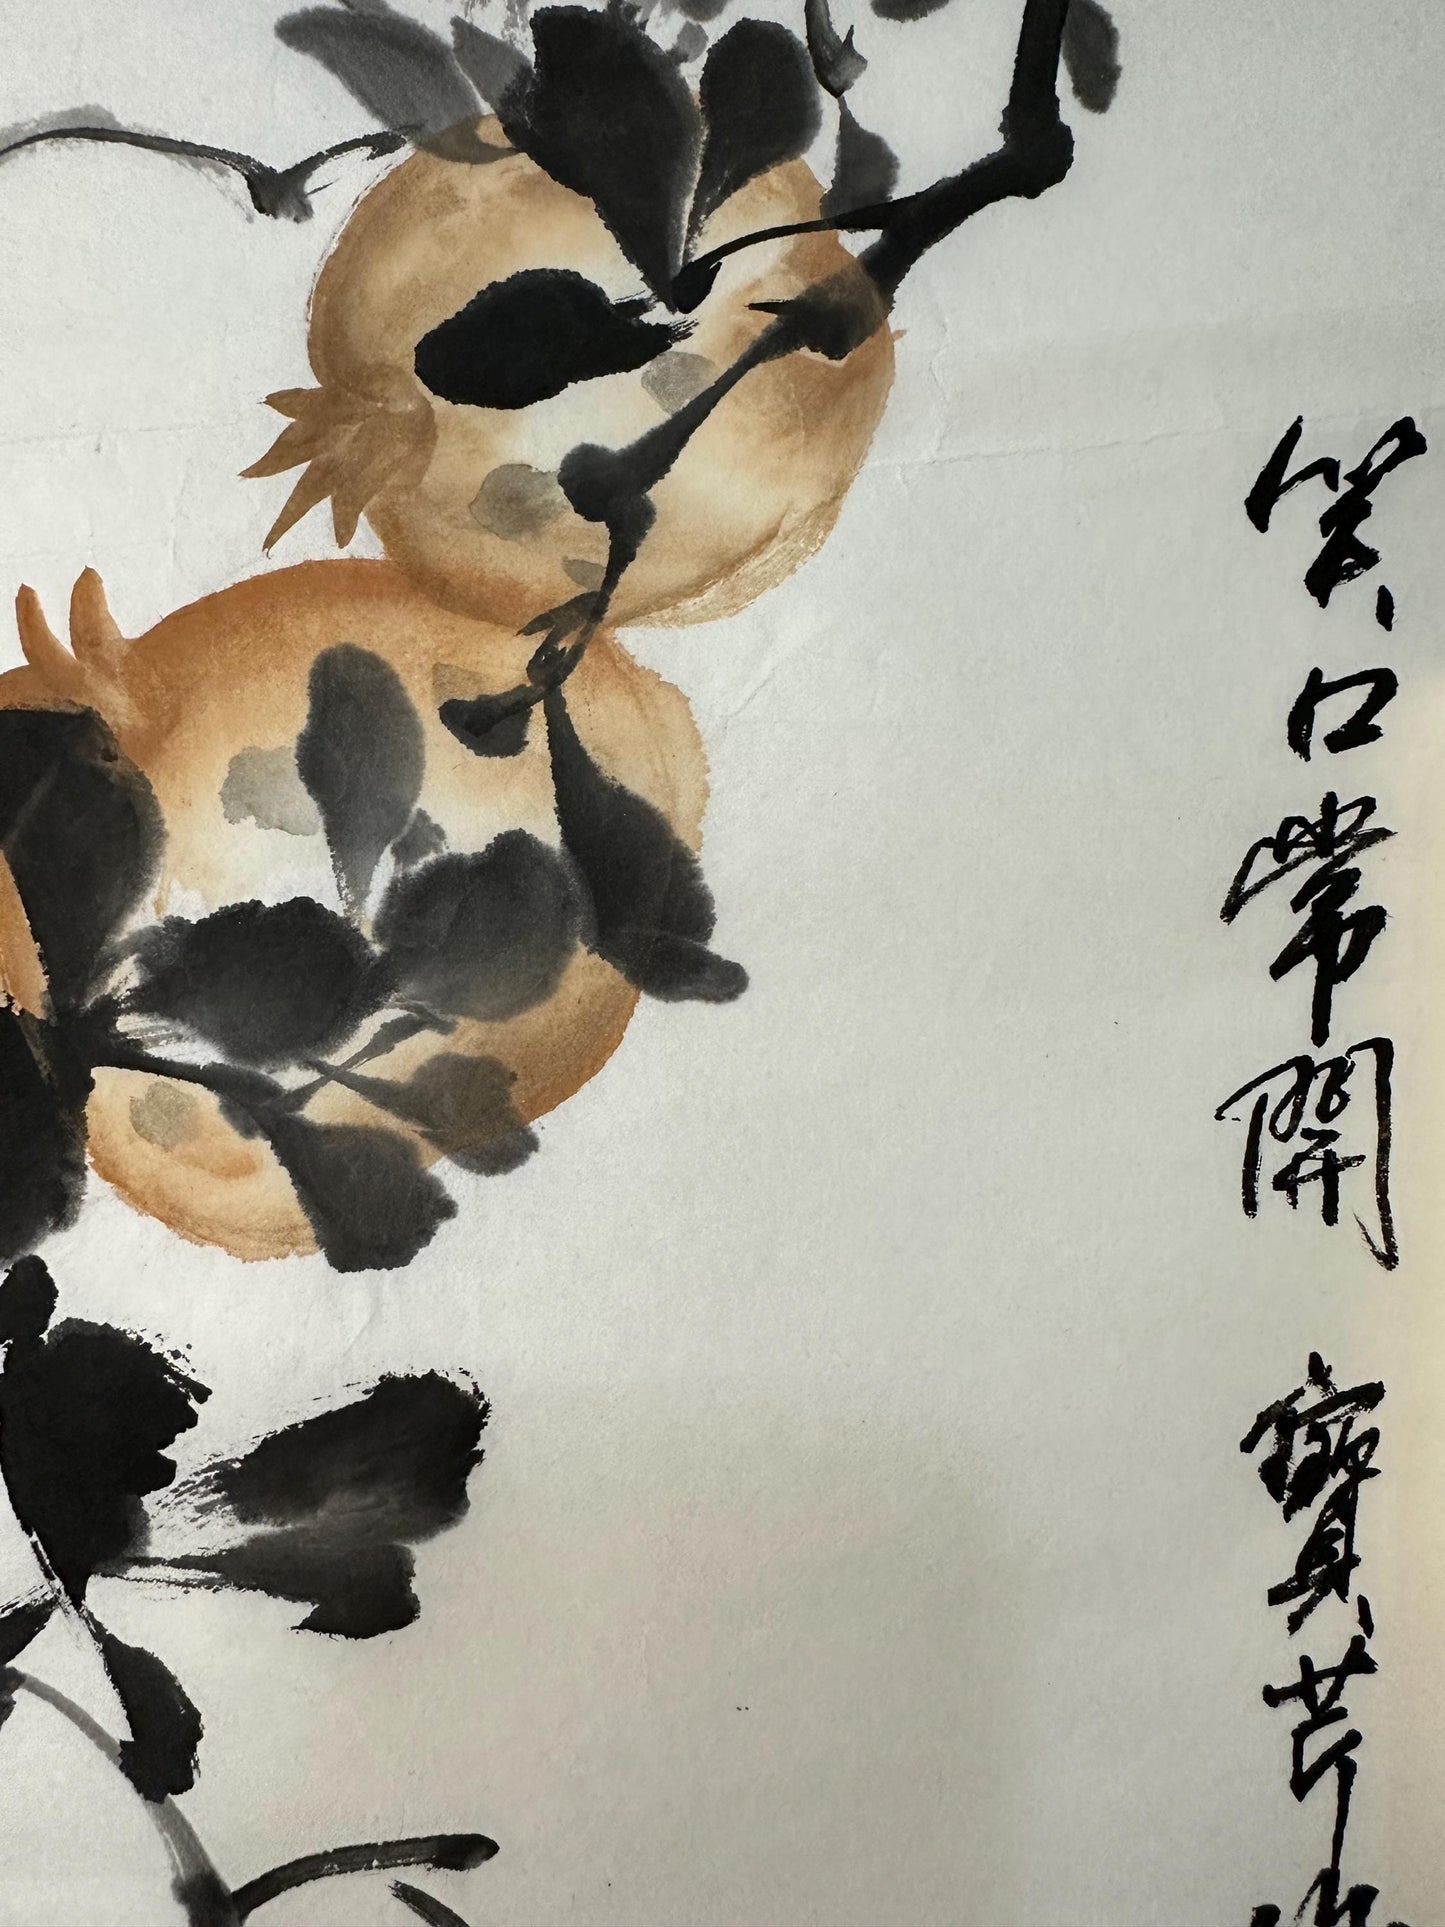 笑口常開 寶芹